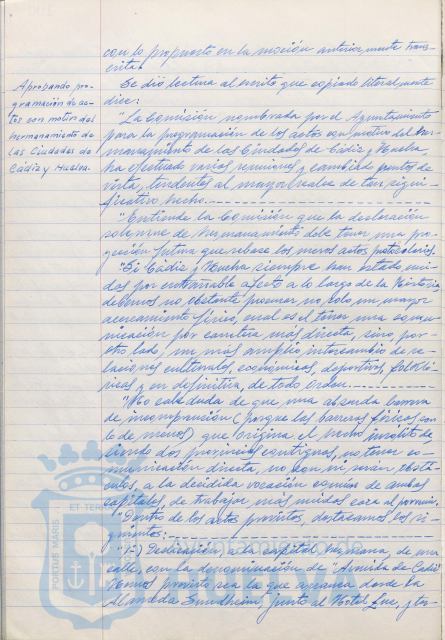 con lo propuesto en la moción anteriormente trans-
crita.
Aprobando pro-
gramación de ac-
tos con motivo del
hermanamiento de
las Ciudades de
Cádiz y Huelva.
Se dió lectura al escrito que copiado literalmente
dice:
"La Comisión nombrada por el Ayuntamiento
para la programación de los actos con motivo del Her-
manamiento de las Ciudades de Cádiz y Huelva,
ha efectuado varias reuniones y cambio de puntos de
vista, tendentes al mayor realce de tan signi-
ficativo hecho.
"Entiende la Comisión que la declaración
solemne de hermanamiento debe tener una pro-
yección futura que rebase los meros actos protocolarios.
"Si Cádiz y Huelva siempre han estado uni-
das por entrañable afecto a lo largo de la Historia,
debemos no obstante procurar no solo un mayor
acercamiento físico, cual es el tener una comu-
nicación por carretera más directa, sino por
otro lado, un más amplio intercambio de re-
laciones culturales, económicas, deportivas, folkló-
ricas y en definitiva de todo orden.
"No cabe duda de que una absurda barrera
de incomprensión (porque las barreras físicas son
lo de menos) que origina el hecho insólito de
siendo dos provincias contiguas, no tener co-
municación directa, no son ni serán obstá-
culos, a la decidida vocación común de ambas
capitales, de trabajar más unidas cara al porvenir.
"Dentro de los actos previstos, destacamos los si-
guientes:
"1-) Dedicación, a la capital hermana, de una
calle, con la denominación de "Avenida de Cádiz"
Hemos previsto sea la que arranca desde la
Alameda Sundheim, junto al Hotel Luz, y
PORTUS MARIS
ET TERR
Ayuntamiento de
HUELVA